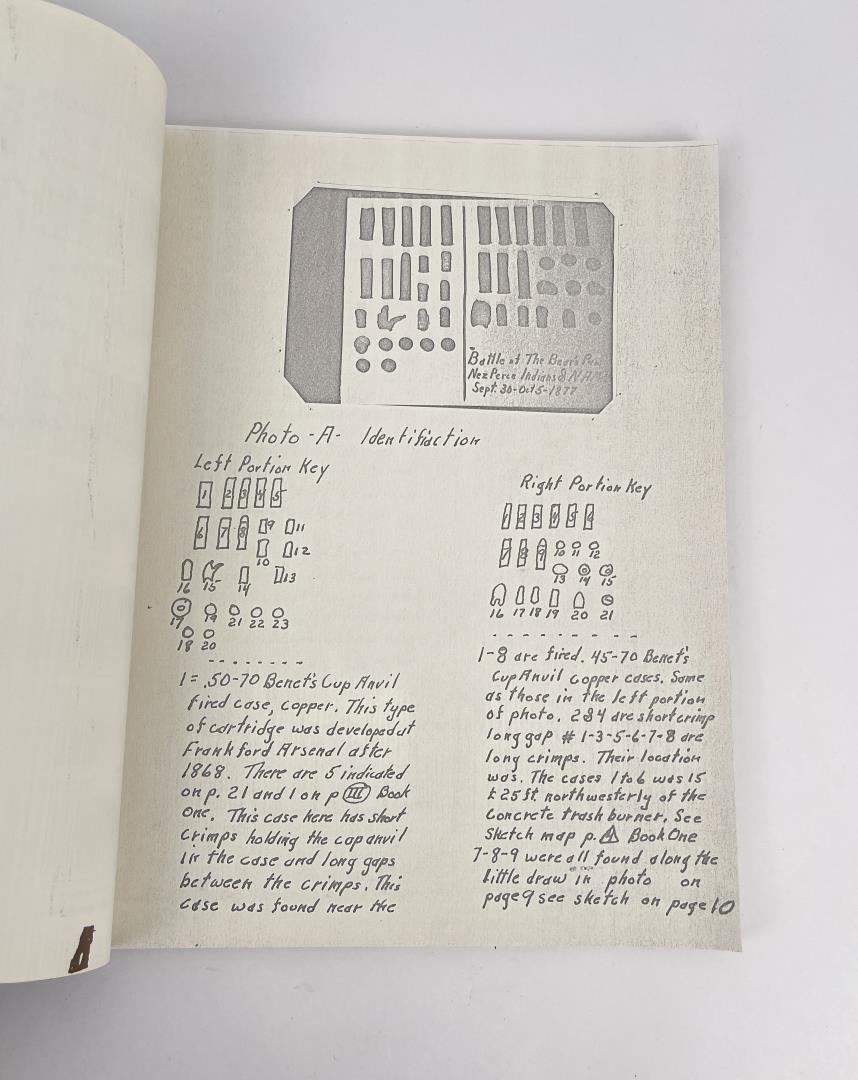 Battle at The Bear's
Nez Perce Indians &
Sept. 30-Oct 5-1877
Photo -A- Identifiaction
Left Portion Key
1 2 3 4 5
6 7 8 9 11
10 12
16 15 14 13
17 19 21 22 23
18 20
Right Portion Key
1 2 3 4 5 6
7 8 9 10 11 12
13 14 15
16 17 18 19 20 21
1 = .50-70 Benet's Cup Anvil
fired case, copper. This type
of cartridge was developed at
Frankford Arsenal after
1868. There are 5 indicated
on p. 21 and 1 on p III Book
One. This case here has short
crimps holding the cap anvil
in the case and long gaps
between the crimps. This
case was found near the
1-8 are fired. 45-70 Benet's
Cup Anvil copper cases. Same
as those in the left portion
of photo. 2 & 4 are short crimp
long gap # 1-3-5-6-7-8 are
long crimps. Their location
was. The cases 1 to 6 was 15
to 25 ft northwesterly of the
Concrete trash burner. See
Sketch map p. A Book One
7-8-9 were all found along the
little draw "in photo on
page 9 see sketch on page 10